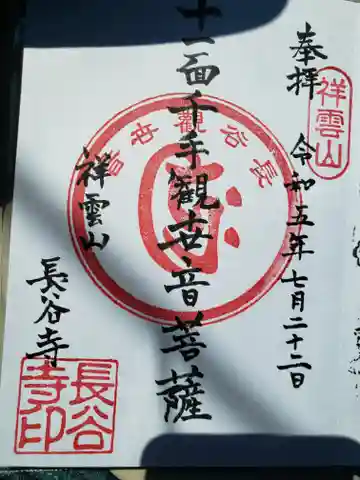 奉拝
祥雲山
令和五年七月二十二日
十一面千手観世音菩薩
長谷観世音
祥雲山
長谷寺
長谷
寺印